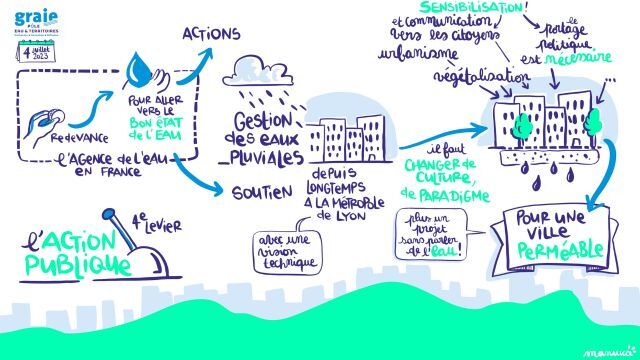 graie
PÔLE
EAU & TERRITOIRES
4 juillet
2023
ACTIONS
POUR ALLER
VERS LE
BON ÉTAT
DE L'EAU
REDEVANCE
L'AGENCE DE L'EAU
EN FRANCE
SOUTIEN
GESTION
DES EAUX
PLUVIALES
DEPUIS
LONGTEMPS
À LA MÉTROPOLE
DE LYON
avec une
vision
technique
SENSIBILISATION!
et communication
vers les citoyens
urbanisme
végétalisation
le
portage
politique
est nécessaire
...
il faut
CHANGER DE
CULTURE,
de PARADIGME
plus un
projet
sans parler
de l'eau!
POUR UNE
VILLE
PERMÉABLE
4e LEVIER
L'ACTION
PUBLIQUE